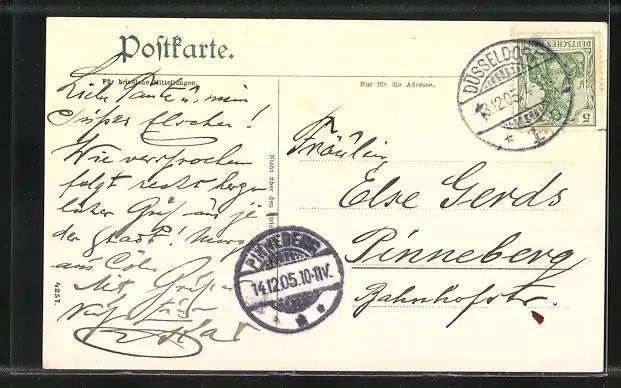 Postkarte.
Für briefliche Mitteilungen.
Nur für die Adresse.
Liebe Tante u. mein
süßer
Wie versprochen
folgt recht herz-
licher Gruß aus je-
der Stadt. Morgen
aus Cöln.
Mit Grüßen
Fräulein
Else Gerds
Pinneberg
Bahnhofstr.
Nicht über den
4257.
DÜSSELDORF
13.12.05
1
PINNEBERG
14.12.05.10-11V.
DEUTSCHES REICH
5